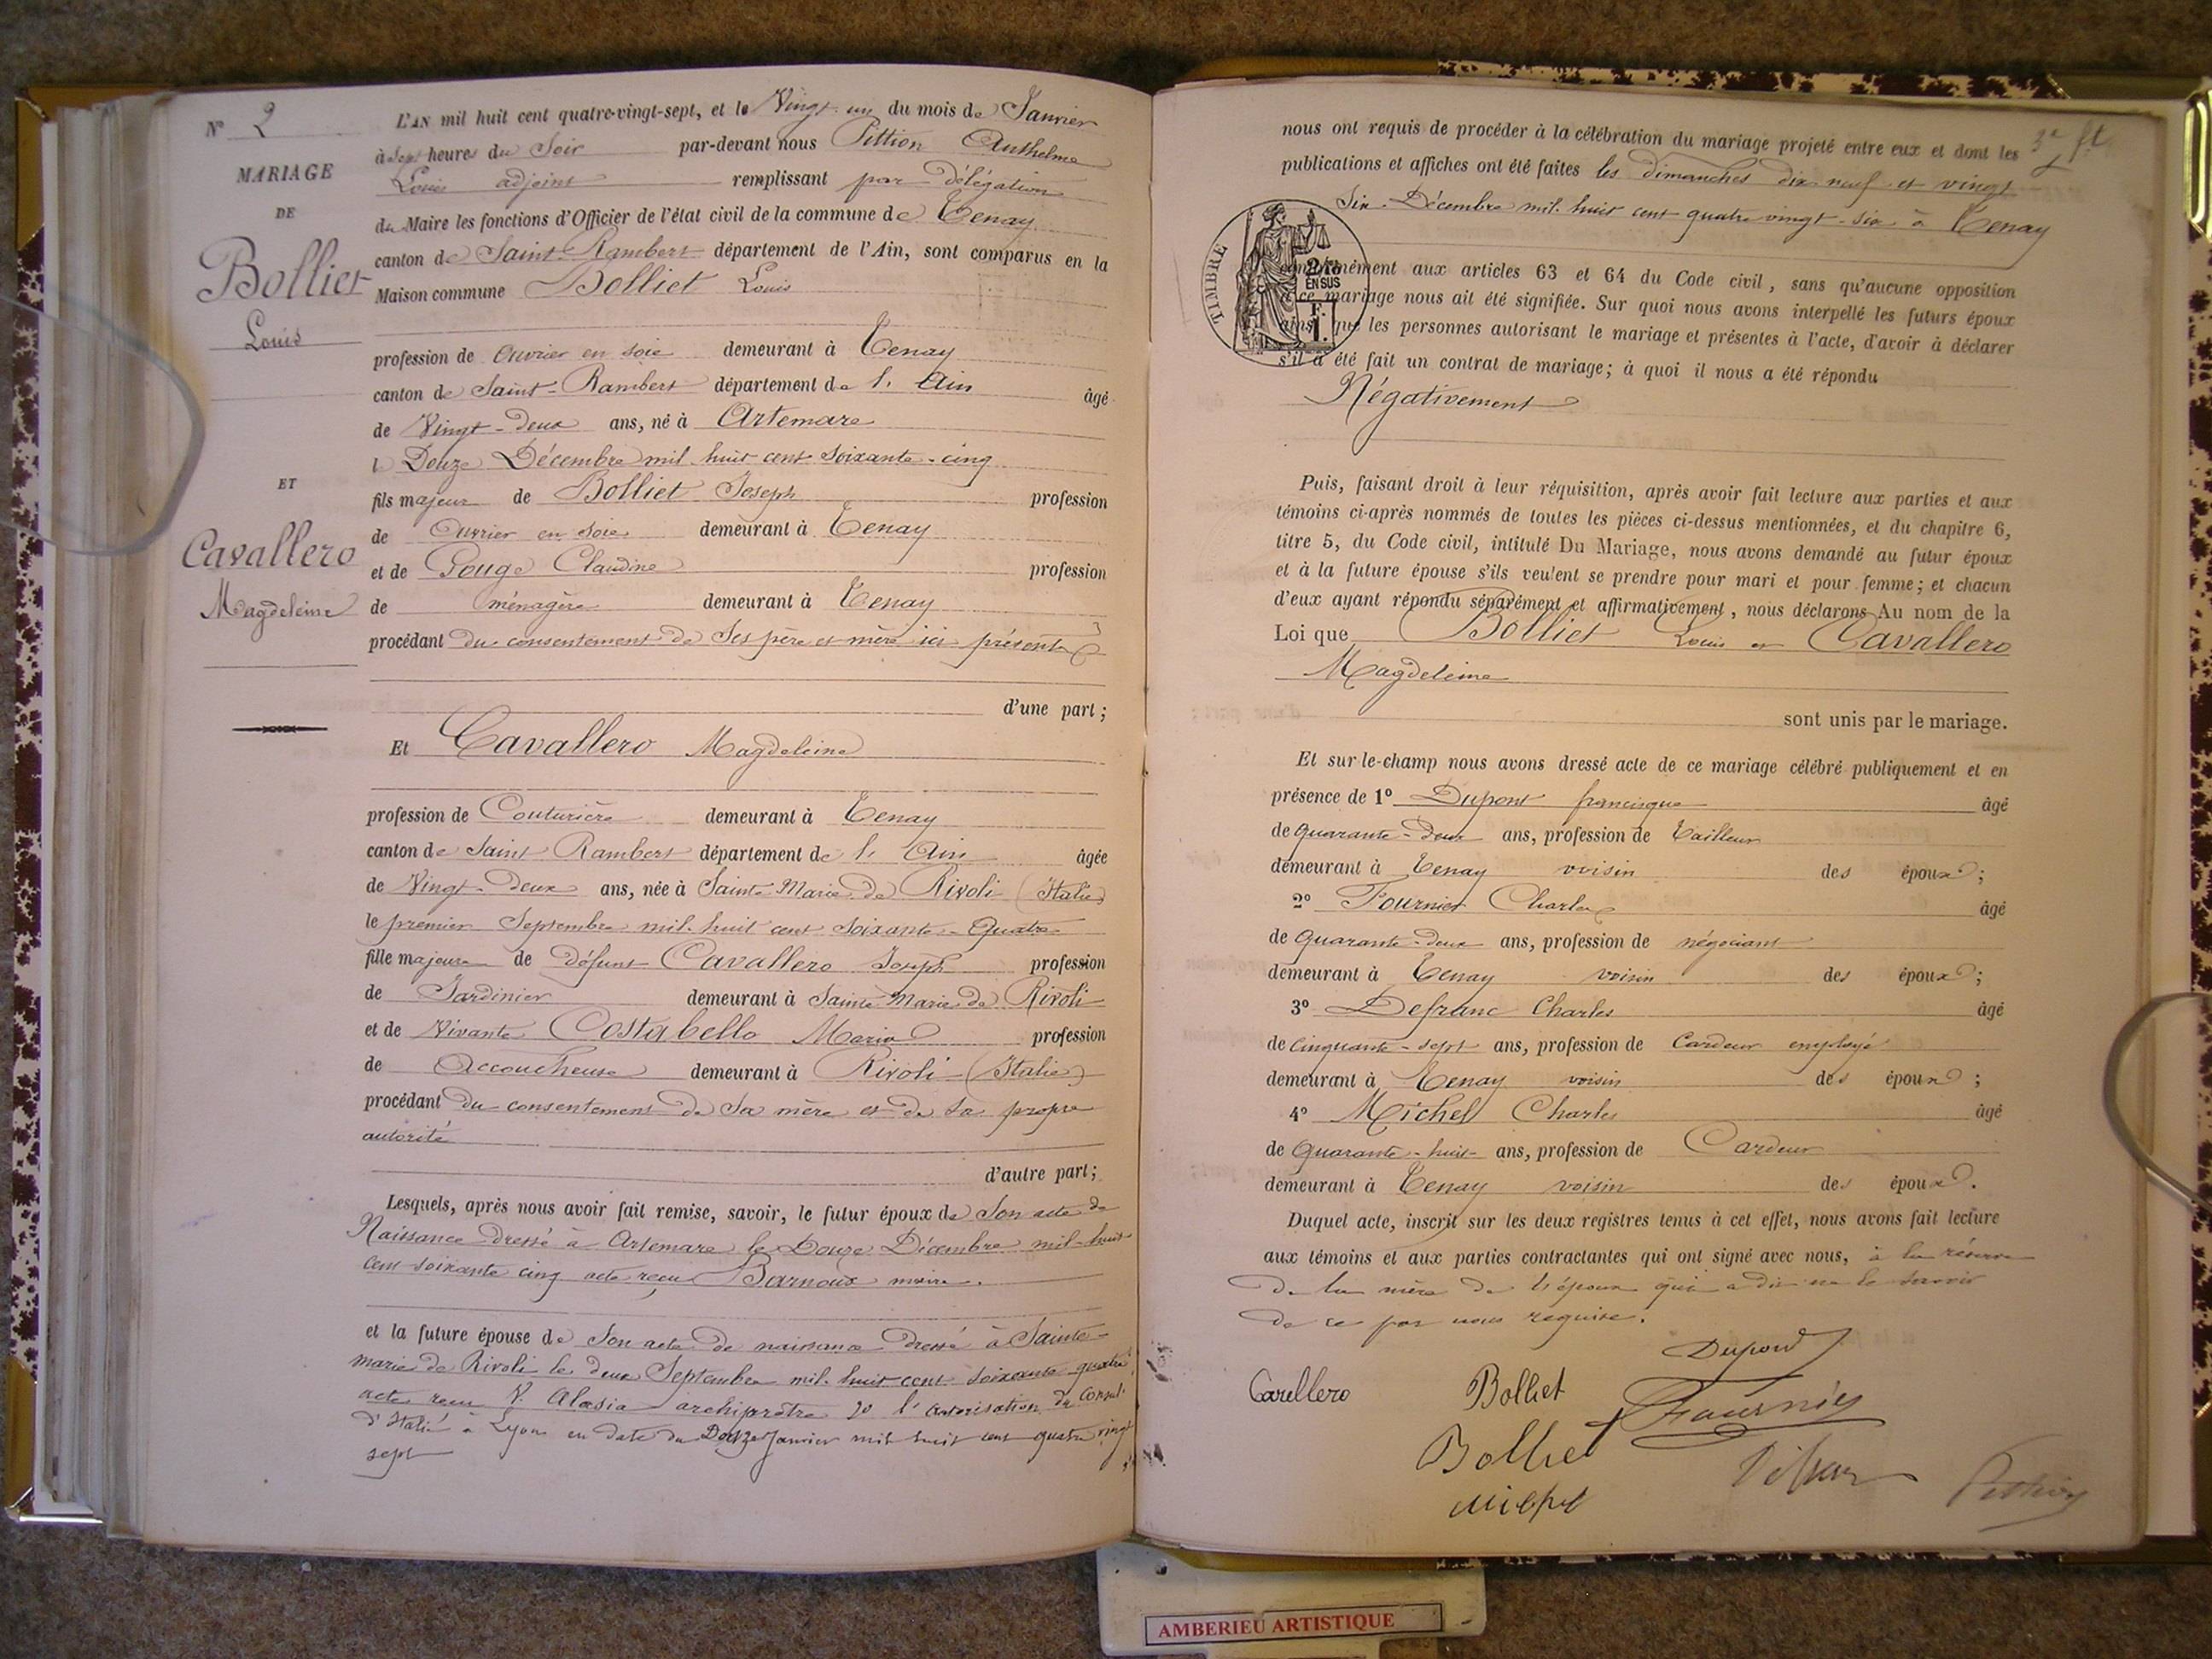 N° 2
MARIAGE
DE
Bolliet
Louis
ET
Cavallero
Magdeleine
L'AN mil huit cent quatre-vingt-sept, et le Vingt-un du mois de Janvier
à Sept heures du Soir par-devant nous Pittion Anthelme
Louis adjoint remplissant par délégation
du Maire les fonctions d'Officier de l'état civil de la commune de Tenay
canton de Saint-Rambert département de l'Ain, sont comparus en la
Maison commune Bolliet Louis
profession de Ouvrier en soie demeurant à Tenay
canton de Saint-Rambert département de l'Ain âgé
de Vingt-deux ans, né à Artemare
le Douze Décembre mil huit cent soixante-cinq
fils majeur de Bolliet Joseph profession
de Ouvrier en soie demeurant à Tenay
et de Gouge Claudine profession
de ménagère demeurant à Tenay
procédant du consentement de Ses père et mère ici présents
d'une part;
Et Cavallero Magdeleine
profession de Couturière demeurant à Tenay
canton de Saint Rambert département de l'Ain âgée
de Vingt-deux ans, née à Sainte Marie de Rivoli (Italie)
le premier Septembre mil-huit cent soixante-Quatre
fille majeure de défunt Cavallero Joseph profession
de Jardinier demeurant à Sainte Marie de Rivoli
et de Vivante Costabello Maria profession
de Accoucheuse demeurant à Rivoli (Italie)
procédant du consentement de Sa mère et de sa propre
autorité
d'autre part;
Lesquels, après nous avoir fait remise, savoir, le futur époux de Son acte de
Naissance dressé à Artemare le Douze Décembre mil-huit-
cent soixante cinq acte reçu Barnoux maire.
et la future épouse de Son acte de naissance dressé à Sainte-
marie de Rivoli le deux Septembre mil-huit cent soixante quatre
acte reçu V. Alasia archiprêtre 2° l'autorisation du Consul
d'Italie à Lyon en date du Douze Janvier mil huit cent quatre vingt
sept
3e ft
nous ont requis de procéder à la célébration du mariage projeté entre eux et dont les
publications et affiches ont été faites les dimanches dix neuf et vingt
Six Décembre mil huit cent quatre vingt-six à Tenay
TIMBRE
2/10
EN SUS
F.
1.
conformément aux articles 63 et 64 du Code civil, sans qu'aucune opposition
à ce mariage nous ait été signifiée. Sur quoi nous avons interpellé les futurs époux
ainsi que les personnes autorisant le mariage et présentes à l'acte, d'avoir à déclarer
s'il a été fait un contrat de mariage; à quoi il nous a été répondu
Négativement
Puis, faisant droit à leur réquisition, après avoir fait lecture aux parties et aux
témoins ci-après nommés de toutes les pièces ci-dessus mentionnées, et du chapitre 6,
titre 5, du Code civil, intitulé Du Mariage, nous avons demandé au futur époux
et à la future épouse s'ils veulent se prendre pour mari et pour femme; et chacun
d'eux ayant répondu séparément et affirmativement, nous déclarons Au nom de la
Loi que Bolliet Louis et Cavallero
Magdeleine
sont unis par le mariage.
Et sur-le-champ nous avons dressé acte de ce mariage célébré publiquement et en
présence de 1° Dupont francisque âgé
de Quarante-deux ans, profession de Tailleur
demeurant à Tenay voisin des époux;
2° Fournier Charles âgé
de Quarante-deux ans, profession de négociant
demeurant à Tenay voisin des époux;
3° Defranc Charles âgé
de Cinquante-sept ans, profession de Cardeur employé
demeurant à Tenay voisin des époux;
4° Michel Charles âgé
de Quarante-huit ans, profession de Cardeur
demeurant à Tenay voisin des époux.
Duquel acte, inscrit sur les deux registres tenus à cet effet, nous avons fait lecture
aux témoins et aux parties contractantes qui ont signé avec nous, à la réserve
de la mère de l'époux qui a dit ne le savoir
de ce par nous requise.
Dupont
Cavellero Bolliet Fournier
Bolliet
Michel Pittion
AMBERIEU ARTISTIQUE